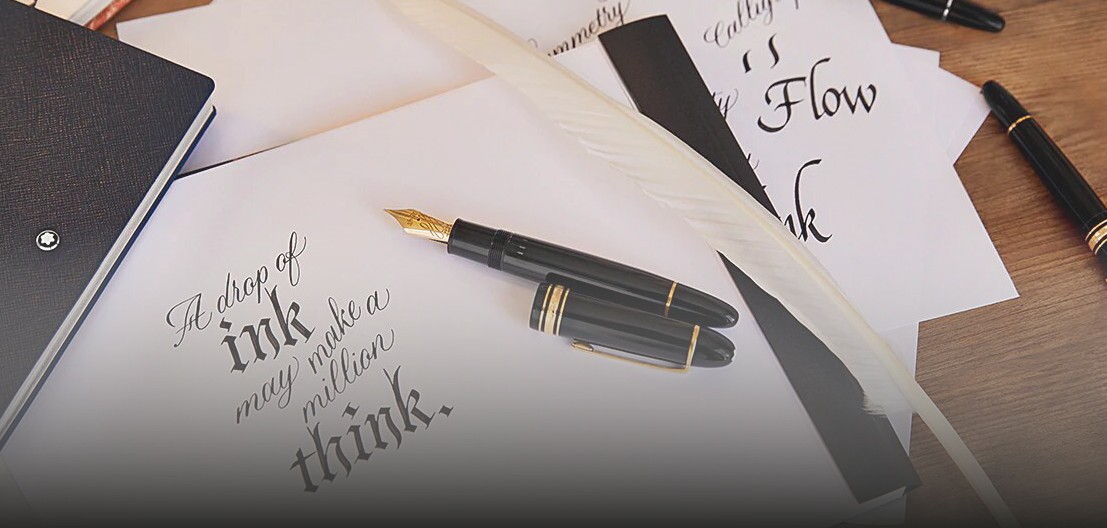 A drop of
ink
may make a
million
think.
mmetry
Calligr
Flow
nk